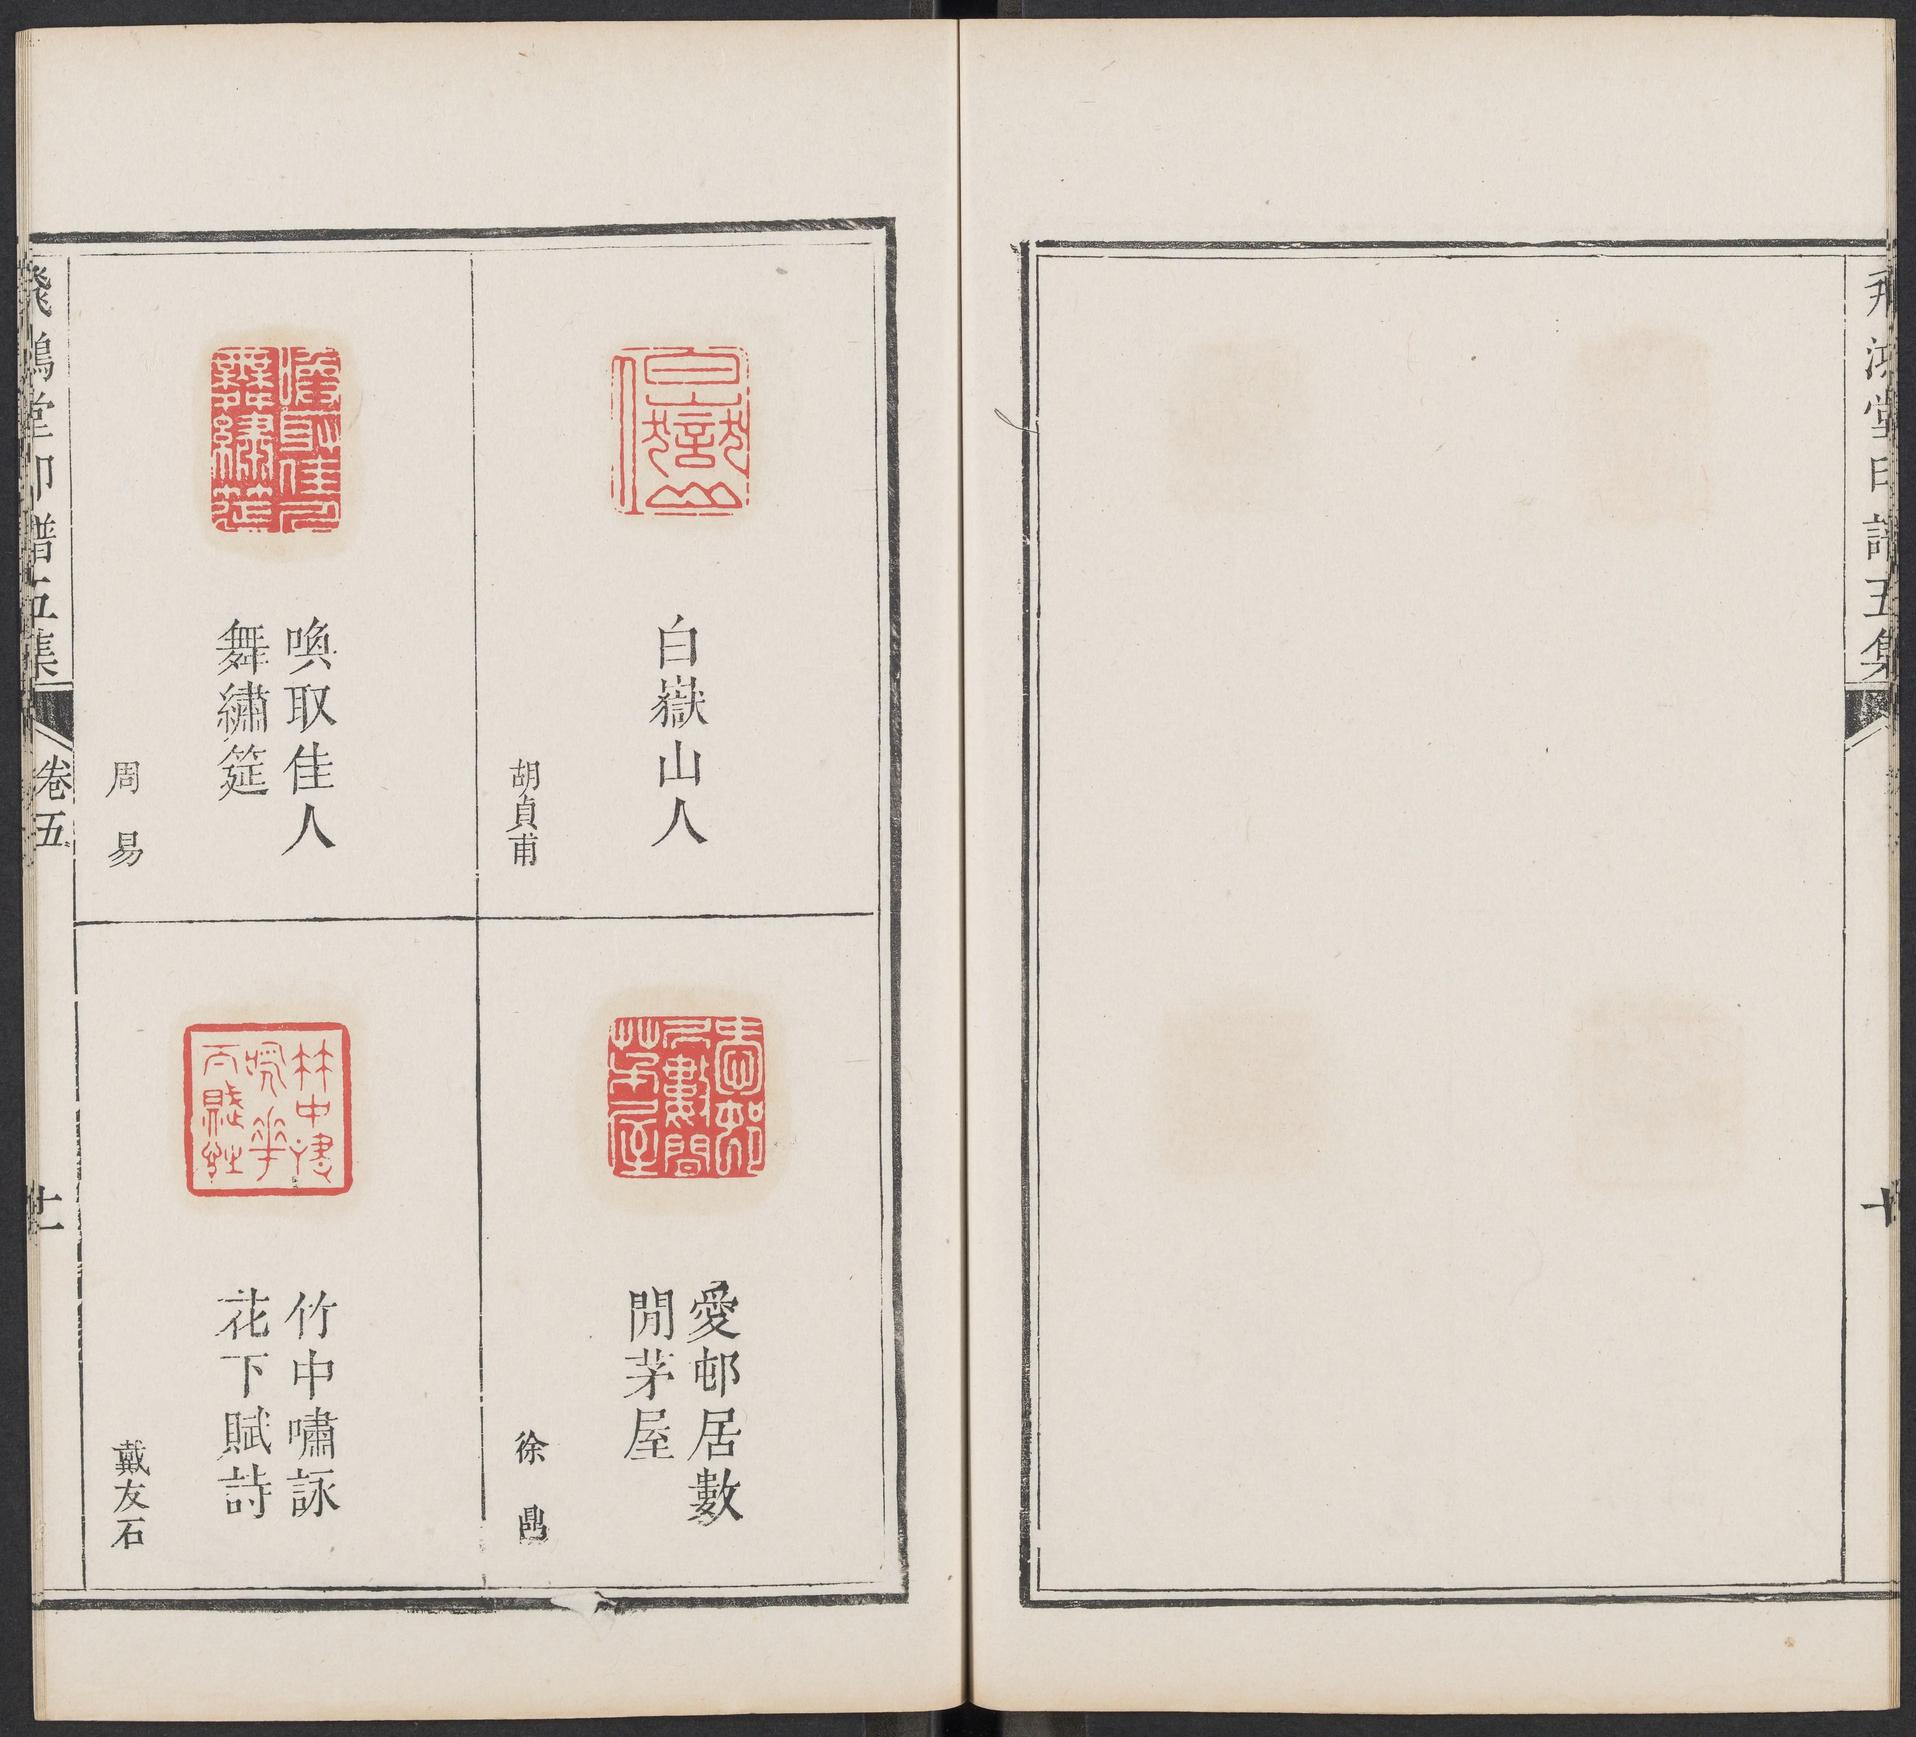 飛鴻堂印譜五集
十
白嶽山人
胡貞甫
愛邨居數
閒茅屋
徐鼎
喚取佳人
舞繡筵
周易
竹中嘯詠
花下賦詩
戴友石
飛鴻堂印譜五集
卷五
十一